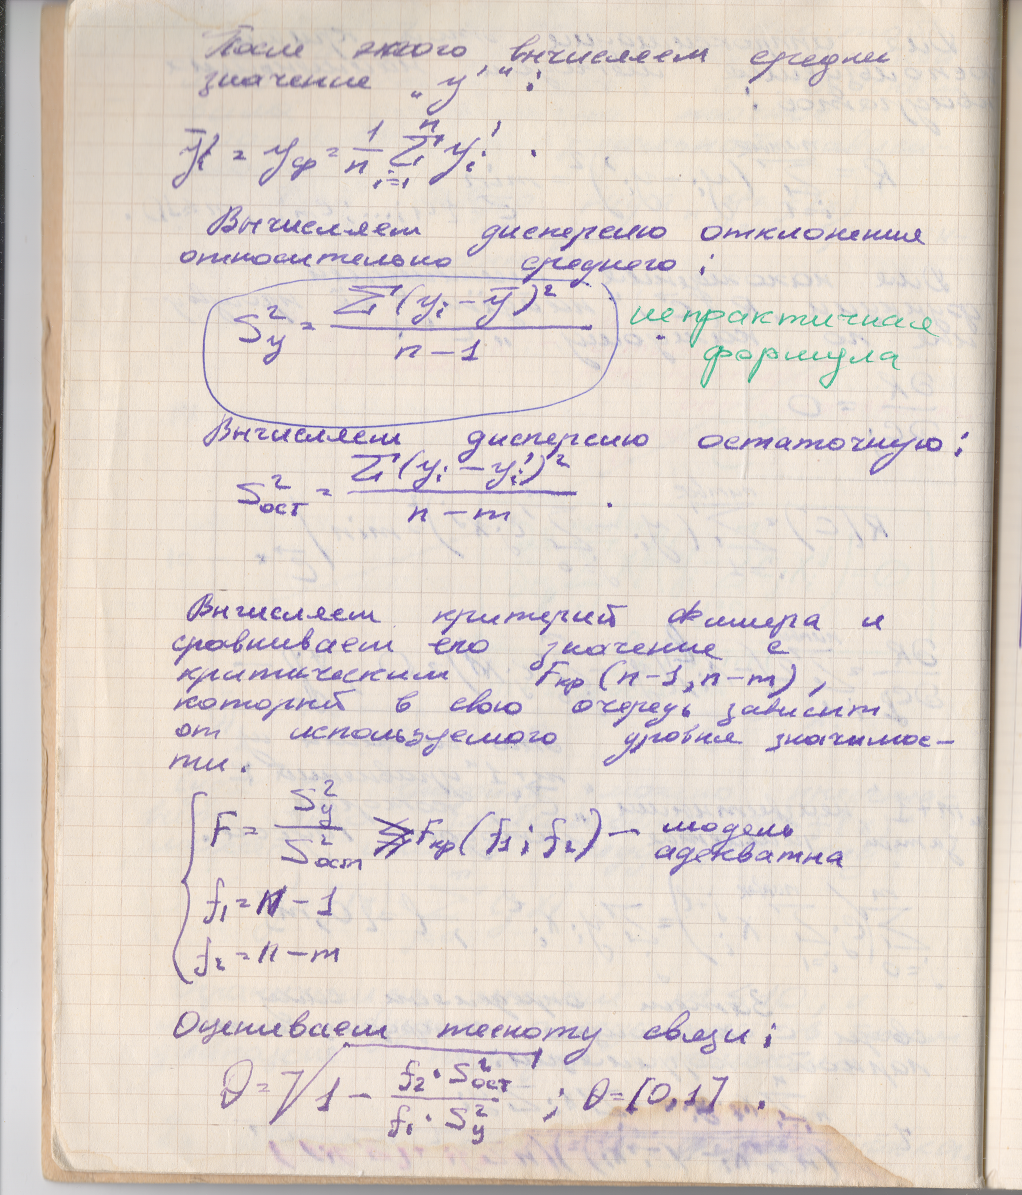 После этого вычисляем средние
значение „y'“:
ȳ'ᵢ = y_ср = 1/n Σⁿᵢ₌₁ yᵢ' .
Вычисляем дисперсию отклонения
относительно среднего:
S²_y = Σ(yᵢ - ȳ)² / (n - 1) непрактичная
формула
Вычисляем дисперсию остаточную:
S²_ост = Σ(yᵢ - yᵢ')² / (n - m) .
Вычисляем критерий Фишера и
сравниваем его значение с
критическим F_кр (n-1, n-m),
который в свою очередь зависит
от используемого уровня значимос-
ти.
F = S²_y / S²_ост ≥ F_кр (f₁; f₂) — модель
адекватна
f₁ = n - 1
f₂ = n - m
Оцениваем тесноту связи:
θ = √(1 - (f₂ · S²_ост) / (f₁ · S²_y)) ; θ = [0,1] .